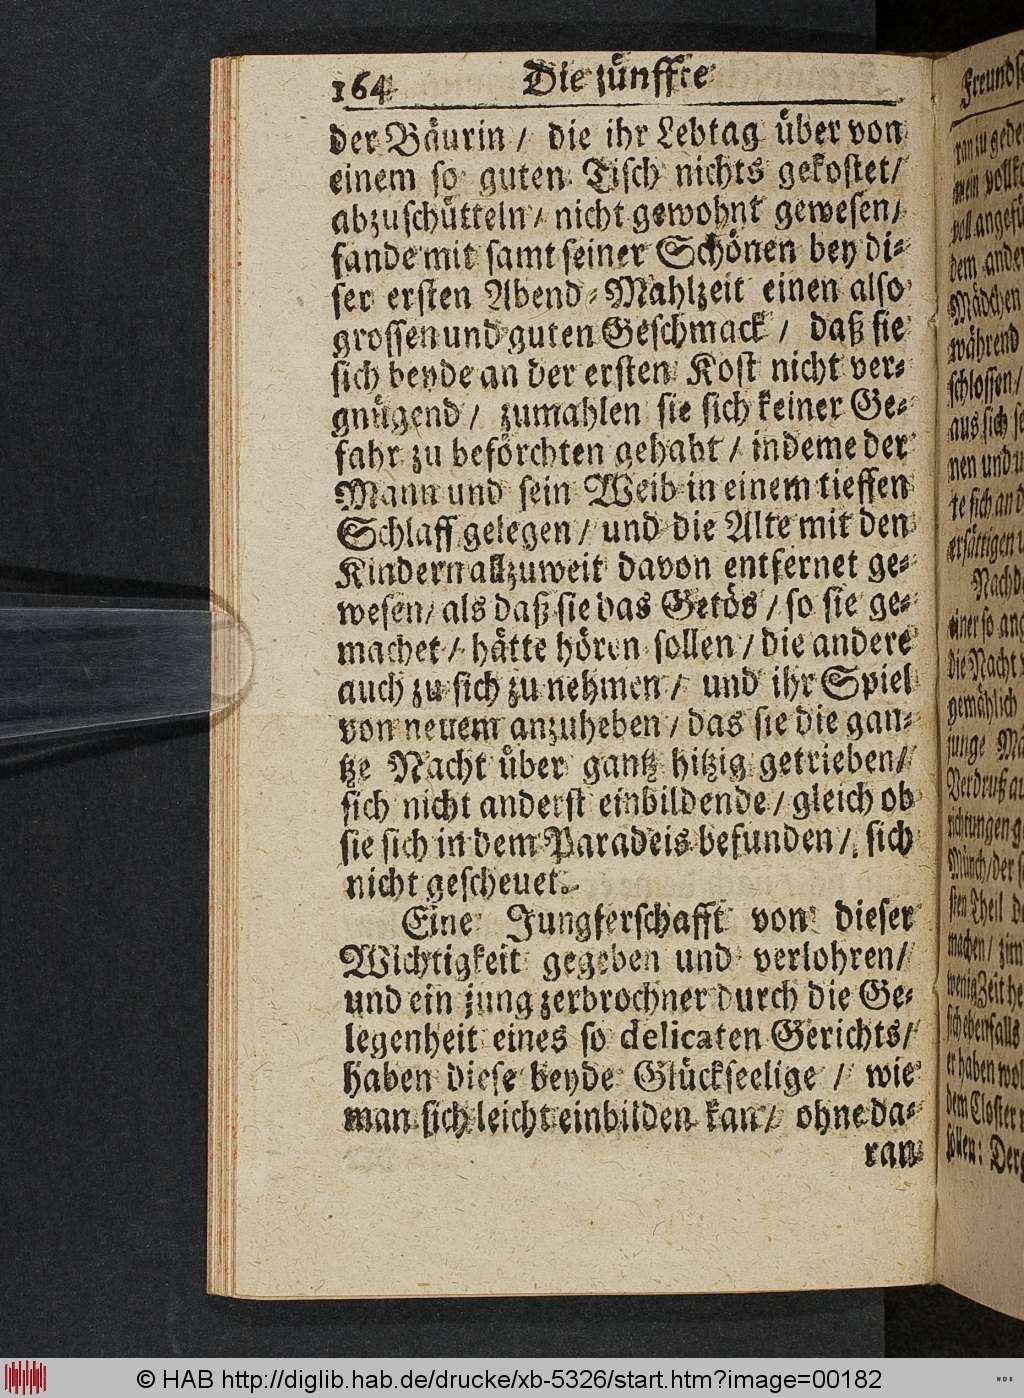 164 Die zünffte
der Bäurin / die ihr Lebtag über von
einem so guten Tisch nichts gekostet /
abzuschütteln / nicht gewohnt gewesen /
fande mit samt seiner Schönen bey di-
ser ersten Abend-Mahlzeit einen also
grossen und guten Geschmack / daß sie
sich beyde an der ersten Kost nicht ver-
gnügend / zumahlen sie sich keiner Ge-
fahr zu beförchten gehabt / indeme der
Mann und sein Weib in einem tieffen
Schlaff gelegen / und die Alte mit den
Kindern allzuweit davon entfernet ge-
wesen / als daß sie das Getös / so sie ge-
machet / hätte hören sollen / die andere
auch zu sich zu nehmen / und ihr Spiel
von neuem anzuheben / das sie die gan-
tze Nacht über gantz hitzig getrieben /
sich nicht anderst einbildende / gleich ob
sie sich in dem Paradeis befunden / sich
nicht gescheuet.
Eine Jungferschafft von dieser
Wichtigkeit gegeben und verlohren /
und ein jung zerbrochner durch die Ge-
legenheit eines so delicaten Gerichts /
haben diese beyde Glückseelige / wie
man sich leicht einbilden kan / ohne da-
ran
dem ander
Mädchen
während
schlossen /
nen und
Nachd
einer so ang
die Nacht
gemählich
junge Mä
Verdruß
Münch / der
sten Theil
machen /
wenig Zeit
sich ebenfalls
er haben
dem Closter
sollen: Der
© HAB http://diglib.hab.de/drucke/xb-5326/start.htm?image=00182